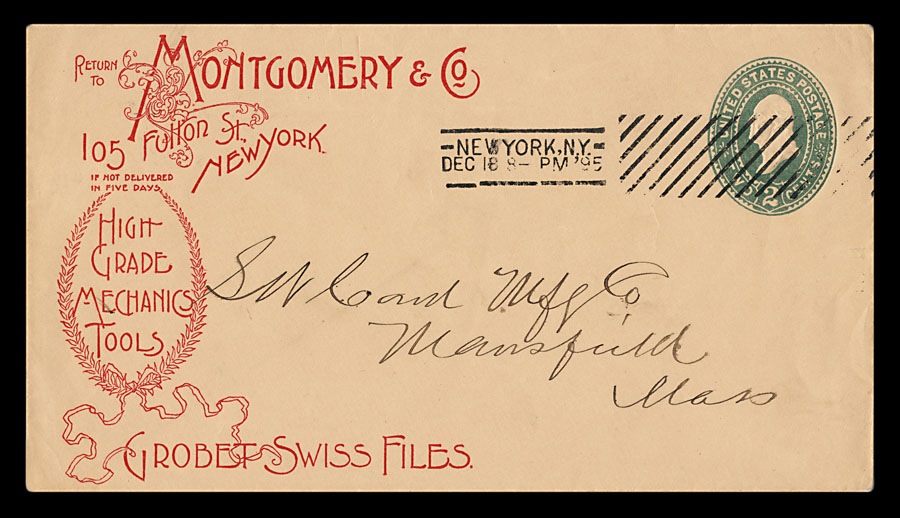 RETURN TO
MONTGOMERY & Co
105 Fulton St.
NEW YORK.
IF NOT DELIVERED
IN FIVE DAYS
HIGH
GRADE
MECHANICS
TOOLS
GROBET SWISS FILES.
NEW YORK, N.Y.
DEC 18 8- PM '95
UNITED STATES POSTAGE
2
S W Card Mfg Co
Mansfield
Mass